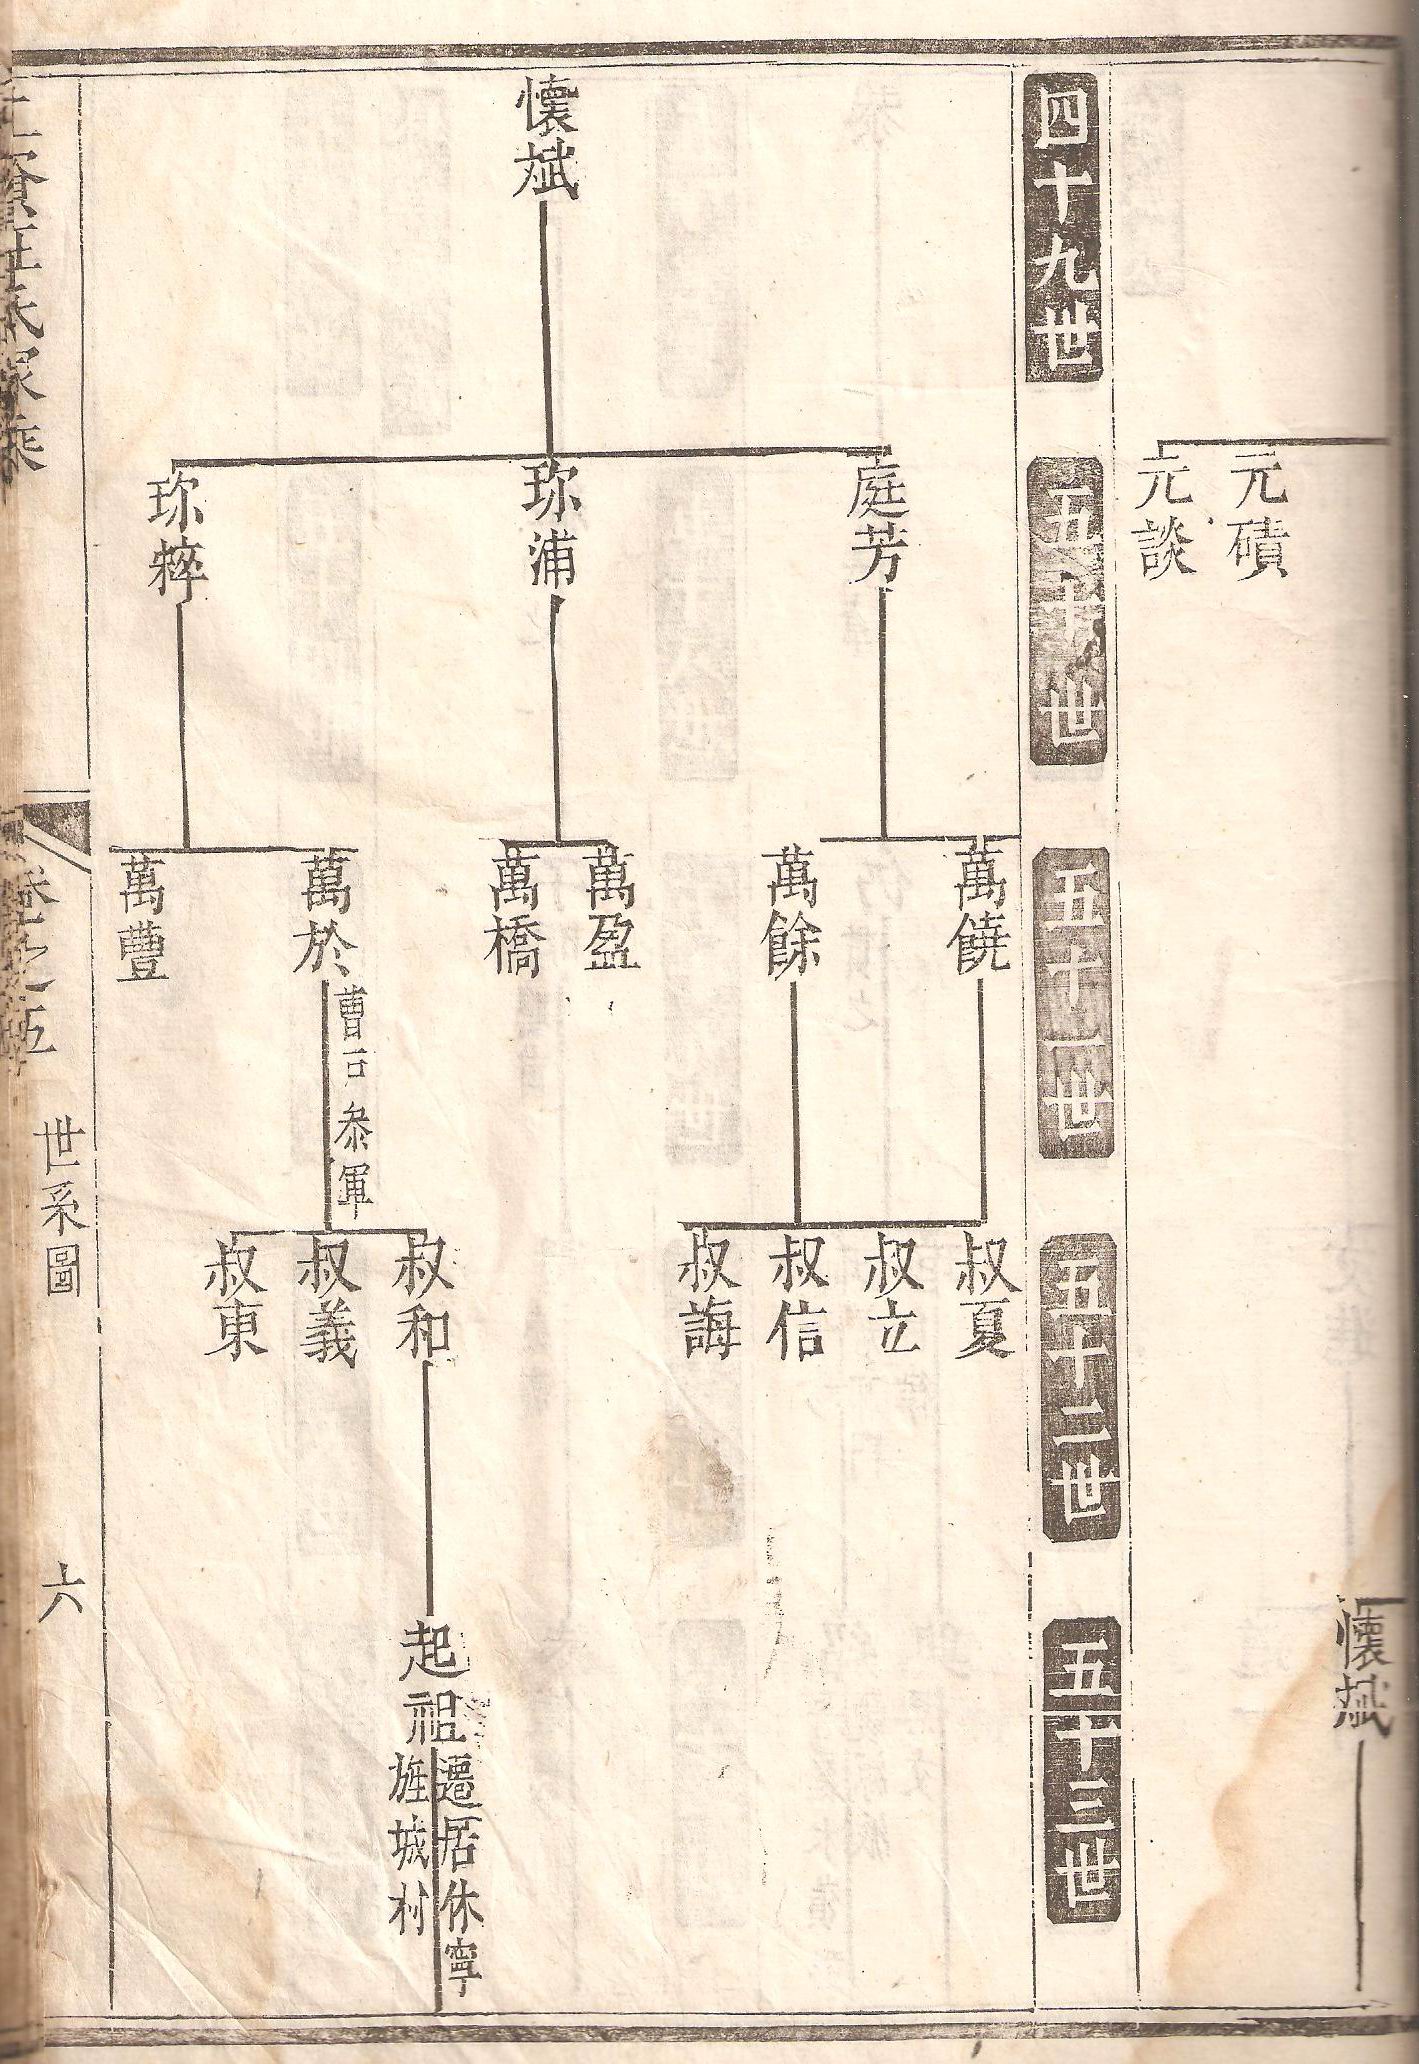 元磧
元談
懷斌
四十九世
五十世
五十一世
五十二世
五十三世
懷斌
庭芳
珎浦
珎粹
萬饒
萬餘
萬盈
萬橋
萬於
曹司叅軍
萬豐
叔夏
叔立
叔信
叔誨
叔和
叔義
叔東
起祖
遷居休寧
旌城村
卷之五
世系圖
六